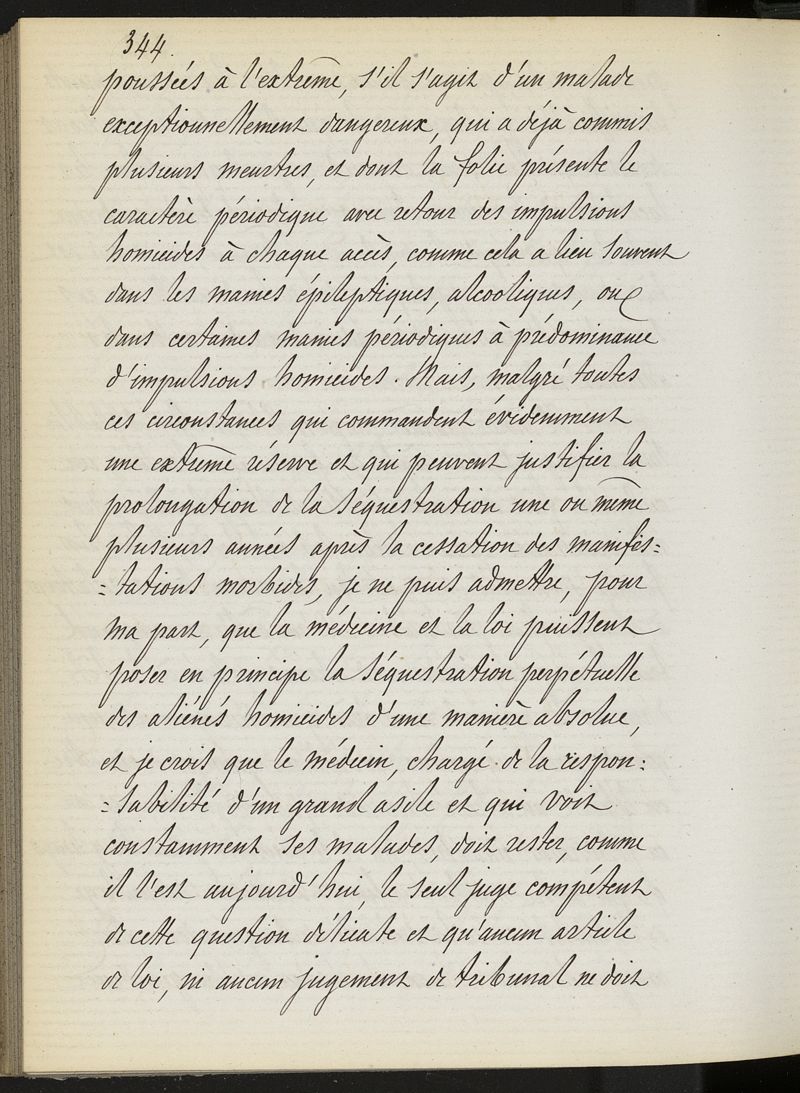 344.
poussées à l'extrême, s'il s'agit d'un malade
exceptionnellement dangereux, qui a déjà commis
plusieurs meurtres, et dont la folie présente le
caractère périodique avec retour des impulsions
homicides à chaque accès, comme cela a lieu souvent
dans les manies épileptiques, alcooliques, ou
dans certaines manies périodiques à prédominance
d'impulsions homicides. Mais, malgré toutes
ces circonstances qui commandent évidemment
une extrême réserve et qui peuvent justifier la
prolongation de la séquestration une ou même
plusieurs années après la cessation des manifes=
=tations morbides, je ne puis admettre, pour
ma part, que la médecine et la loi puissent
poser en principe la séquestration perpétuelle
des aliénés homicides d'une manière absolue,
et je crois que le médecin, chargé de la respon=
=sabilité d'un grand asile et qui voit
constamment ses malades, doit rester, comme
il l'est aujourd'hui, le seul juge compétent
de cette question délicate et qu'aucun article
de loi, ni aucun jugement de tribunal ne doit